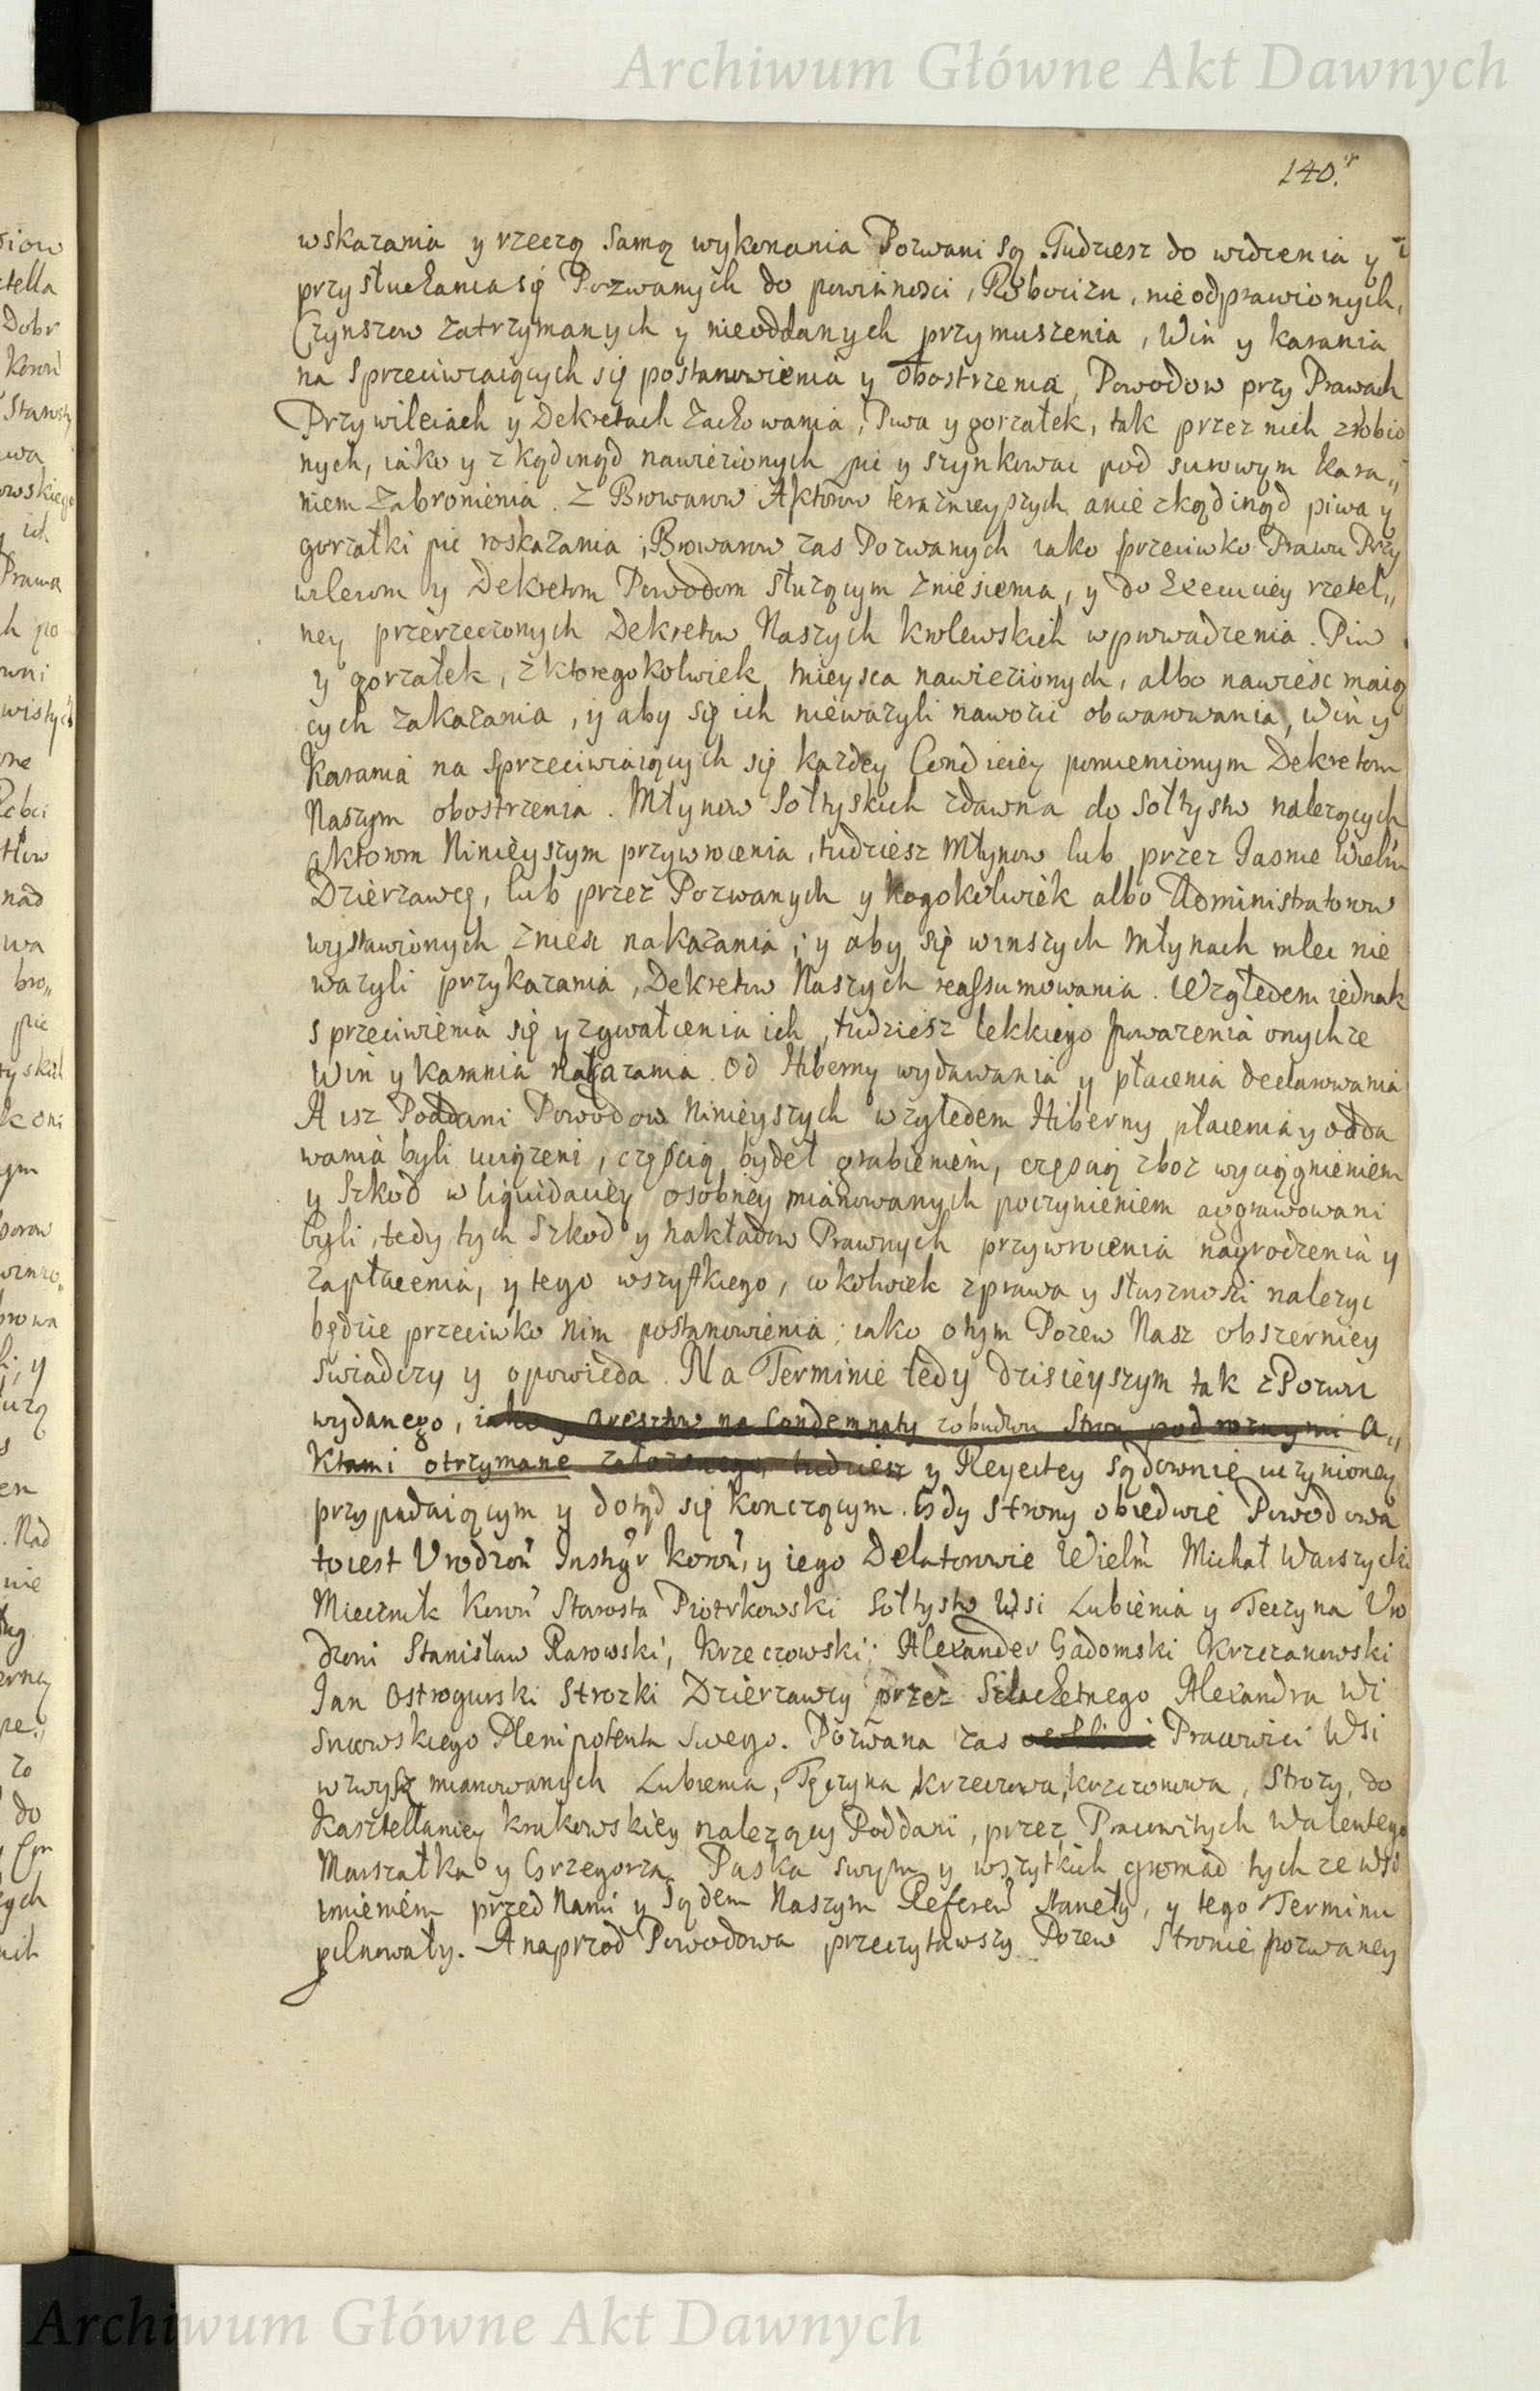 Archiwum Główne Akt Dawnych
140.r
wskazania y rzeczą samą wykonania Pozwani są. Tudziesz do widzenia y
przysłuchania się Pozwanych do powinności, Robocizn, nieodprawionych,
Czynszow zatrzymanych y nieoddanych przymuszenia, Win y karania
na sprzeciwiaiących się postanowienia y obostrzenia, Powodow przy Prawach
Przywileiach y Dekretach zachowania, Piwa y gorzałek, tak przez nich zrobio
nych, iako y zkądinąd nawiezionych pić y szynkować pod surowym kara„
niem zabronienia. Z Browarow Aktorow teraznieyszych a nie zkądinąd piwa y
gorzałki pić roskazania; Browarow zas Pozwanych iako przeciwko Prawu Przy
wileiom y Dekretom Powodom służącym zniesienia, y do Execuciey rzetel„
ney przerzeczonych Dekretow Naszych krolewskich wprowadzenia. Piw
y gorzałek, z ktoregokolwiek mieysca nawiezionych, albo nawieść maią
cych zakazania, y aby się ich nieważyli nawozić obwarowania, win y
Karania na sprzeciwiaiących się kazdey Condiciey pomienionym Dekretom
Naszym obostrzenia. Młynow Sołtyskich zdawna do Sołtystw nalezących
aktorom Ninieyszym przywrocenia, tudziesz Młynow lub przez Jasnie Wielm
Dzierzawcę, lub przez Pozwanych y kogokolwiek albo Administratorow
wystawionych znieść nakazania; y aby się winszych Młynach mleć nie
wazyli przykazania, Dekretow Naszych reassumowania. Względem iednak
sprzeciwienia się y zgwałcenia ich, tudziesz lekkiego powazenia onychze
Win y karania nakazania. Od Hiberny wydawania y płacenia declarowania
A isz Poddani Powodow Ninieyszych względem Hiberny płacenia y odda
wania byli uciązeni, częścią bydeł grabieniem, częscią zboz wyciągnieniem
y Szkod w liquidaciey osobney mianowanych poczynieniem aggrawowani
byli, tedy tych Szkod y nakładow Prawnych przywrocenia nagrodzenia y
zapłacenia, y tego wszystkiego, cokolwiek z prawa y słuszności nalezyc
będzie przeciwko nim postanowienia; iako o tym Pozew Nasz obszerniey
swiadczy y opowieda. Na Terminie tedy dzisieyszym tak z Pozwu
wydanego, iako y aresztow na Condemnaty zobudwu Stron pod roznymi A„
Ktami otrzymane założonego, tudziesz y Reiectey sądownie uczynioney
przypadaiącym y dotąd się konczącym. Gdy strony obiedwie Powodowa
toiest Urodzon Instygr koron, y iego Delatorowie Wielm Michał Warszycki
Miecznik Koron Starosta Piotrkowski Sołtystw Wsi Lubienia y Teczyna Uro
dzeni Stanisław Rarowski, Krzeczowski; Alexander Gadomski Krzczanowski
Jan Ostrogurski Strozki Dzierzawcy przez Szlachetnego Alexandra Wi
sniowskiego Plenipotenta Swego. Pozwana zas Pracowici Wsi
wzwysz mianowanych Lubienia, Tęczyna Krzeczowa, krzczonowa, Strozy, do
Kasztellaniey krakowskiey nalezący Poddani, przez Pracowitych Walentego
Marszałka y Grzegorza Paska swym y wszytkich gromad tychze wsi
imieniem przed Nami y Sądem Naszym Referen Stanęły, y tego Terminu
pilnowały. A naprzod Powodowa przeczytawszy Pozew Stronie pozwaney
Archiwum Główne Akt Dawnych